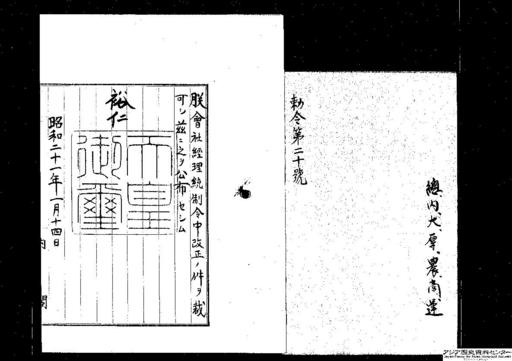 總、内、大、厚、農、商、運
勅令第二十號
朕會社經理統制令中改正ノ件ヲ裁
可シ茲ニ之ヲ公布セシム
裕仁
天皇
御璽
昭和二十一年一月十四日
内閣
アジア歴史資料センター